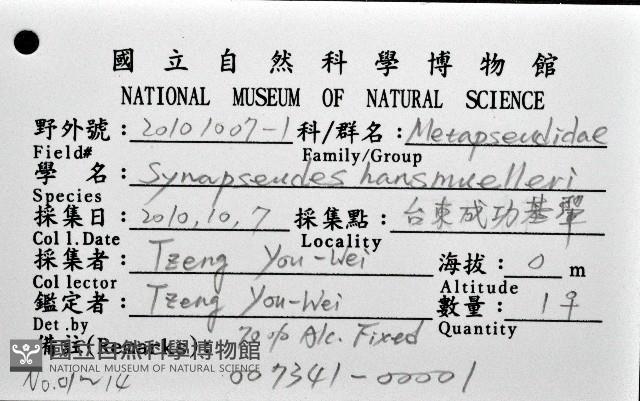 國立自然科學博物館
NATIONAL MUSEUM OF NATURAL SCIENCE
野外號：20101007-1 科/群名：Metapseudidae
Field# Family/Group
學 名：Synapseudes hansmuelleri
Species
採集日：2010.10.7 採集點：台東成功基翬
Coll.Date Locality
採集者：Tzeng You-Wei 海拔：0 m
Collector Altitude
鑑定者：Tzeng You-Wei 數量：1♀
Det.by Quantity
備註(Remarks) 70% Alc. Fixed
國立自然科學博物館
NATIONAL MUSEUM OF NATURAL SCIENCE
No.01~14 007341-00001